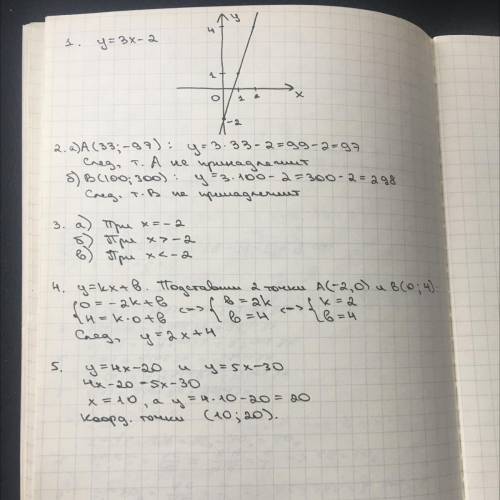 1. y=3x-2
y
4
1
0 1 2 x
-2
2. а) A(33;-97): y=3·33-2=99-2=97
След, т. А не принадлежит
б) B(100;300): y=3·100-2=300-2=298
След, т. В не принадлежит
3. а) При x=-2
б) При x>-2
в) При x<-2
4. y=kx+b. Подставим 2 точки A(-2,0) и B(0;4).
{0=-2k+b {b=2k {k=2
{4=k·0+b <=> {b=4 <=> {b=4
След, y=2x+4
5. y=4x-20 и y=5x-30
4x-20=5x-30
x=10, а y=4·10-20=20
Коорд. точки (10;20).